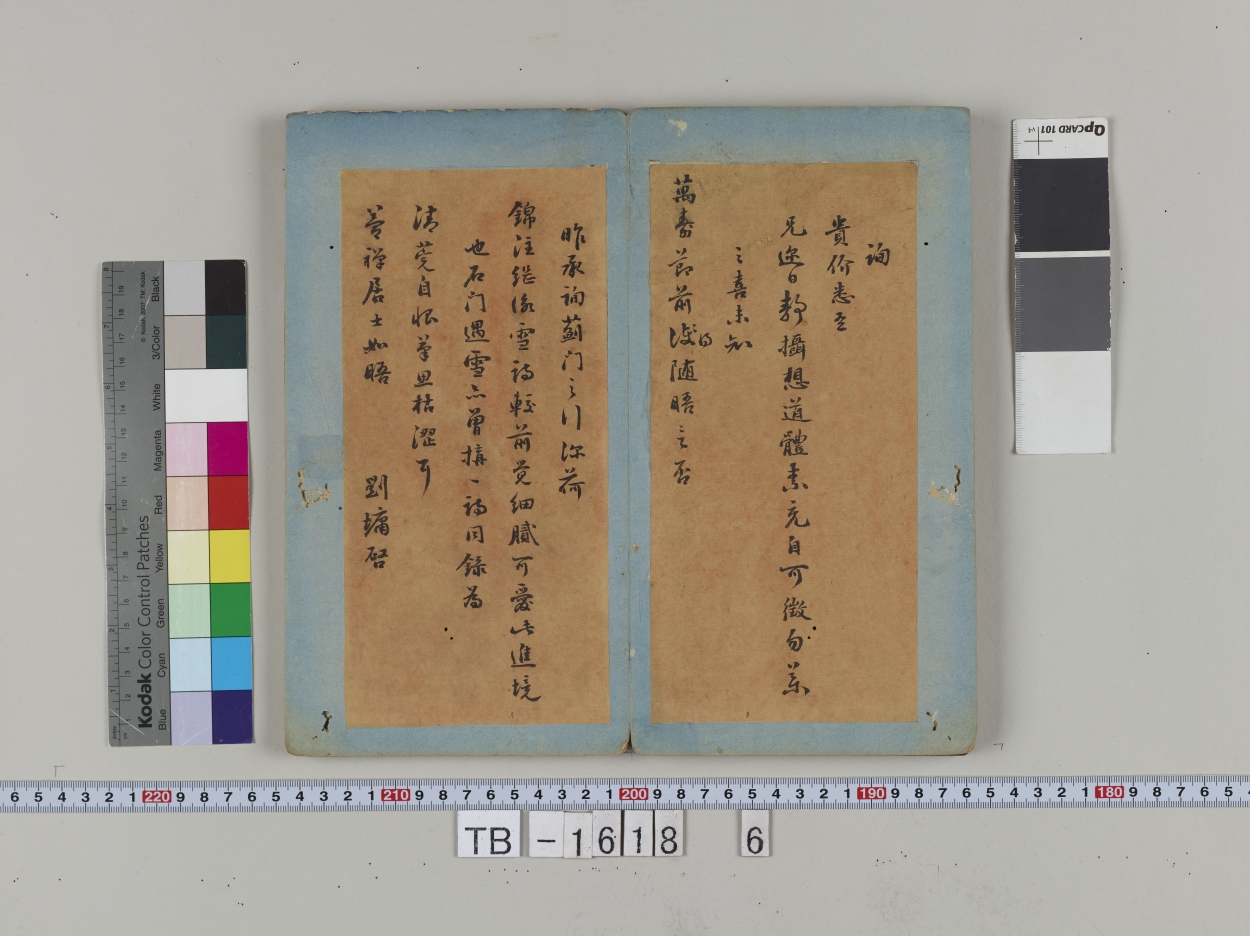 詢
貴价悉言
兄途日靜攝想道體素充自可徵勿藥
之喜未知
萬壽節前後得随晤言否
昨承詢薊门之行深荷
錦注繼依雪詩較前覚細膩可愛此進境
也石门遇雪亦曾構一詩同錄為
清莞自恨筆思枯澀耳
善禪居士如晤
劉墉啓
QPCARD 101 v4
Kodak Color Control Patches
© Kodak, 2007 TM: Kodak
Blue
Cyan
Green
Yellow
Red
Magenta
White
3/Color
Black
6 5 4 3 2 1 220 9 8 7 6 5 4 3 2 1 210 9 8 7 6 5 4 3 2 1 200 9 8 7 6 5 4 3 2 1 190 9 8 7 6 5 4 3 2 1 180 9 8 7 6 5
TB-1618 6